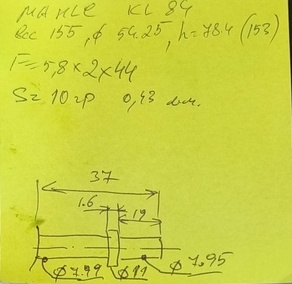 MAHLE KL 84
Вес 155, ф 54.25, h=78.4 (153)
F=5,8×2×44
S=10гр 0,43 мм.
37
1.6
19
ф7.99 ф11 ф7.95